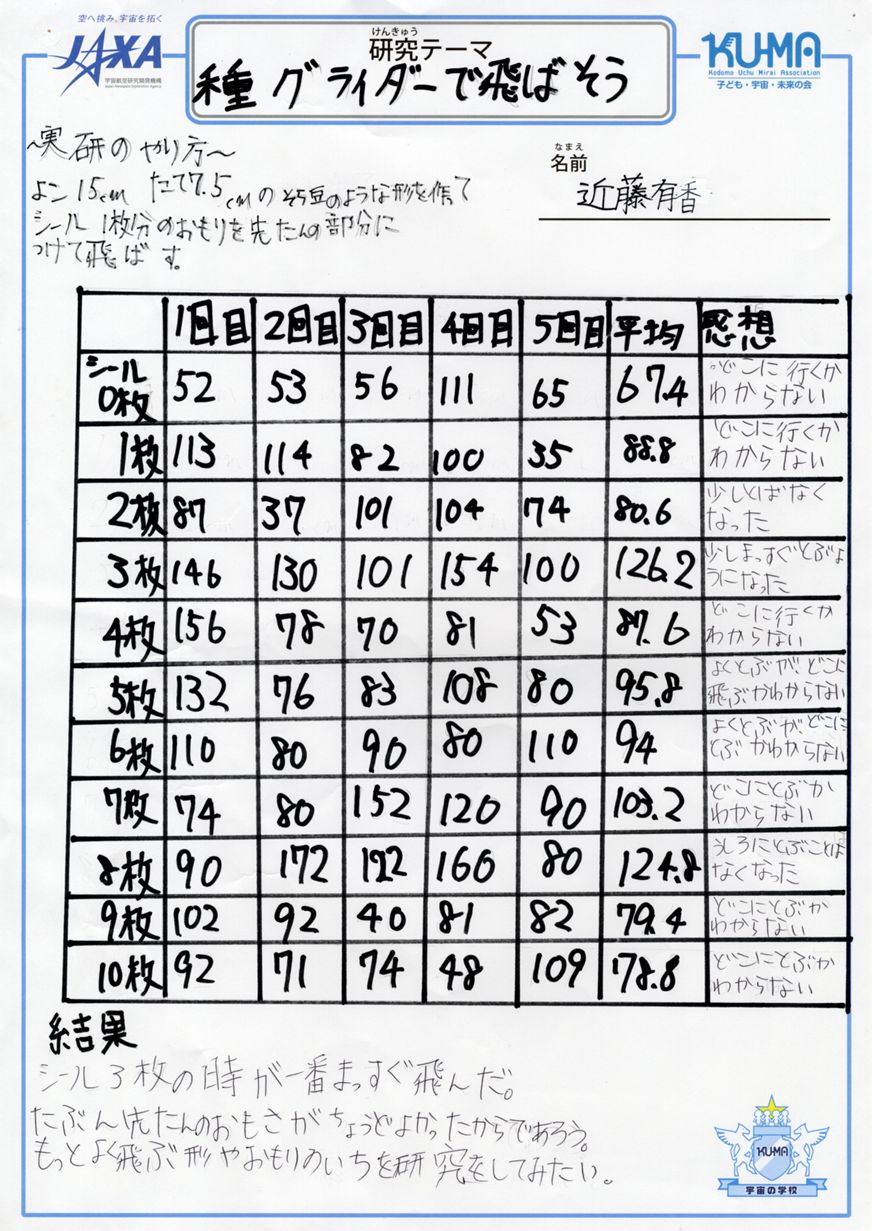 空へ挑み、宇宙を拓く
JAXA
宇宙航空研究開発機構
Japan Aerospace Exploration Agency
けんきゅう
研究テーマ
種グライダーで飛ばそう
KU-MA
Kodomo Uchu Mirai Association
子ども・宇宙・未来の会
～実研のやり方～
よこ15cm たて7.5cmのそら豆のような形を作て
シール1枚分のおもりを先たんの部分に
つけて飛ばす。
なまえ
名前
近藤有香
1回目 2回目 3回目 4回目 5回目 平均 感想
シール0枚 52 53 56 111 65 67.4 どこに行くかわからない
1枚 113 114 82 100 35 88.8 どこに行くかわからない
2枚 87 37 101 104 74 80.6 少しとばなくなった
3枚 146 130 101 154 100 126.2 少しまっすぐとぶようになった
4枚 156 78 70 81 53 87.6 どこに行くかわからない
5枚 132 76 83 108 80 95.8 よくとぶが、どこに飛ぶかわからない
6枚 110 80 90 80 110 94 よくとぶが、どこにとぶかわからない
7枚 74 80 152 120 90 103.2 どこにとぶかわからない
8枚 90 172 122 160 80 124.8 うしろにとぶことはなくなった
9枚 102 92 40 81 82 79.4 どこにとぶかわからない
10枚 92 71 74 48 109 78.8 どこにとぶかわからない
結果
シール3枚の時が一番まっすぐ飛んだ。
たぶん先たんのおもさがちょうどよかったからであろう。
もっとよく飛ぶ形やおもりのいちを研究をしてみたい。
KU-MA
宇宙の学校